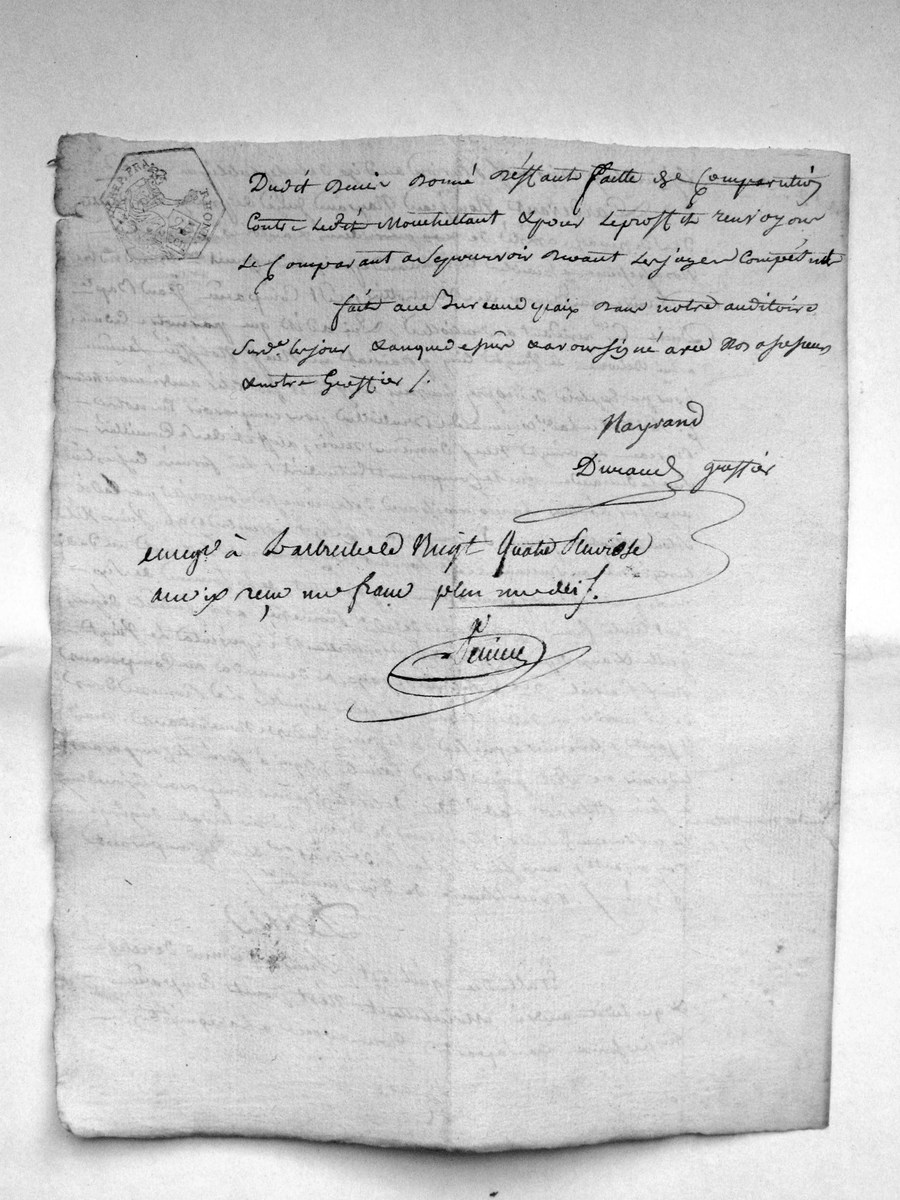 Dudit Denir donné déffaut faute de Comparution
Contre ledit Mouchettant & pour le proffit renvoyons
le Comparant a se pourvoir devant les juges Compétents
faite au Bureau de paix dans notre auditoire
Sud. les jour & an que dessus & avons signé avec Nos assesseurs
& notre Greffier /.
Nayrand
Durand greffier
enregé à Vingt quatre Pluviose
an ix reçu un franc plus un deci /.